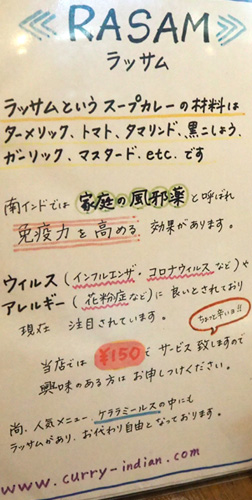 ≪RASAM≫
ラッサム
ラッサムというスープカレーの材料は
ターメリック、トマト、タマリンド、黒こしょう、
ガーリック、マスタード. etc. です
南インドでは家庭の風邪薬と呼ばれ
免疫力を高める 効果があります。
ウィルス(インフルエンザ・コロナウィルスなど)や
アレルギー(花粉症など)に良いとされており
現在 注目されています。
ちょっと辛いヨ!!
当店では ¥150で サービス致しますので
興味のある方は お申しつけください。
尚、人気メニュー、ケララミールスの中にも
ラッサムがあり、お代わり自由となっております。
www.curry-indian.com